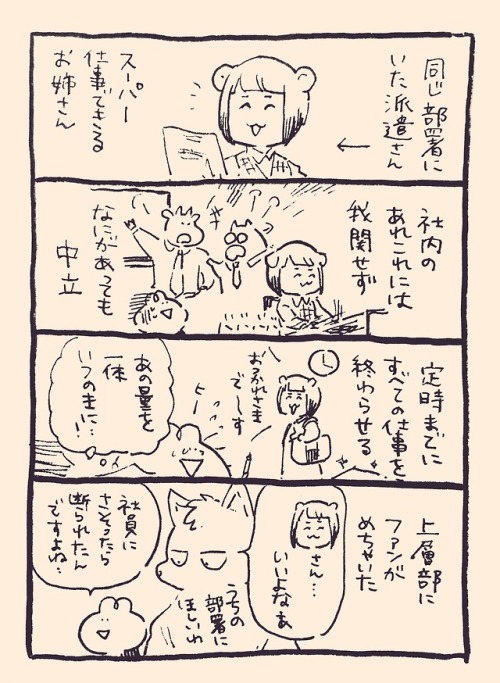 同じ部署に
いた派遣さん
スーパー
仕事できる
お姉さん
社内の
あれこれには
我関せず
なにがあっても
中立
定時までに
すべての仕事を
終わらせる
おつかれさま
で〜す
ヒー
あの量を
一体
いつのまに…
上層部に
ファンが
めちゃいた
さん…
いいよなあ
うちの
部署に
ほしいわ
社員に
さそったら
断られたん
ですよね…